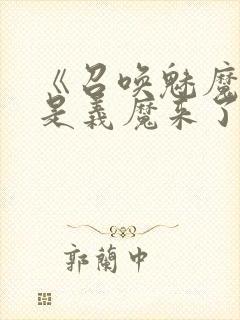 《召唤魅魔
是義魔来了
郭蘭中